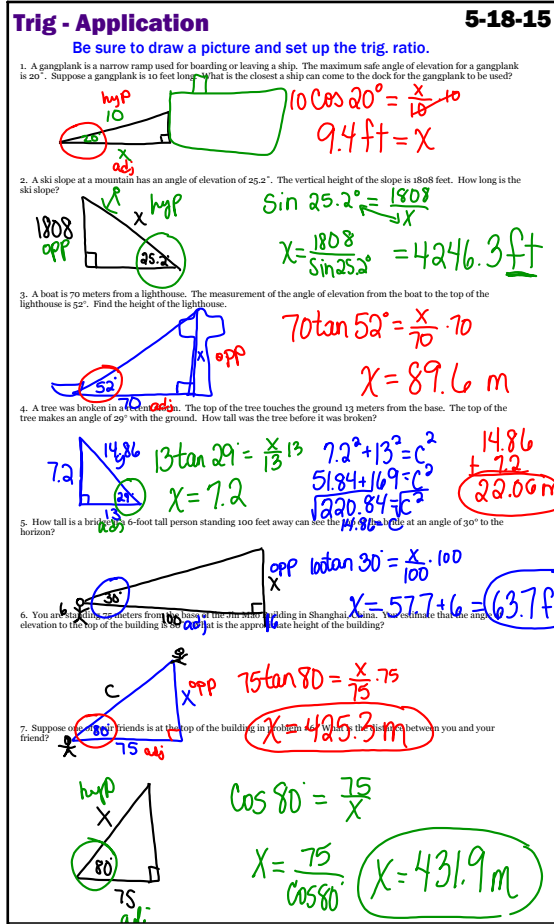 Trig - Application
5-18-15
Be sure to draw a picture and set up the trig. ratio.
1. A gangplank is a narrow ramp used for boarding or leaving a ship. The maximum safe angle of elevation for a gangplank
is 20˚. Suppose a gangplank is 10 feet long. What is the closest a ship can come to the dock for the gangplank to be used?
hyp
10
20°
x
adj
10 cos 20° = x/10 · 10
9.4 ft = x
2. A ski slope at a mountain has an angle of elevation of 25.2˚. The vertical height of the slope is 1808 feet. How long is the
ski slope?
1808
opp
x
hyp
25.2°
Sin 25.2° = 1808/x
x = 1808/Sin25.2° = 4246.3 ft
3. A boat is 70 meters from a lighthouse. The measurement of the angle of elevation from the boat to the top of the
lighthouse is 52°. Find the height of the lighthouse.
52°
70
adj
x
opp
70 tan 52° = x/70 · 70
x = 89.6 m
4. A tree was broken in a storm. The top of the tree touches the ground 13 meters from the base. The top of the
tree makes an angle of 29° with the ground. How tall was the tree before it was broken?
7.2
14.86
29°
13
adj
13 tan 29° = x/13 13
x = 7.2
7.2² + 13² = c²
51.84 + 169 = c²
√220.84 = √c²
14.86 = c
14.86
+ 7.2
22.06 m
5. How tall is a bridge if a 6-foot tall person standing 100 feet away can see the top of the bride at an angle of 30° to the
horizon?
6
30°
100
adj
x
opp
6
100 tan 30° = x/100 · 100
x = 57.7 + 6 = 63.7 f
6. You are standing 75 meters from the base of the Jin Mao Building in Shanghai, China. You estimate that the angle
elevation to the top of the building is 80 What is the approximate height of the building?
C
x
opp
80°
75
adj
75 tan 80 = x/75 · 75
x = 425.3 m
7. Suppose one of your friends is at the top of the building in problem #6. What is the distance between you and your
friend?
hyp
x
80°
75
adj
Cos 80° = 75/x
x = 75/cos80°
x = 431.9 m